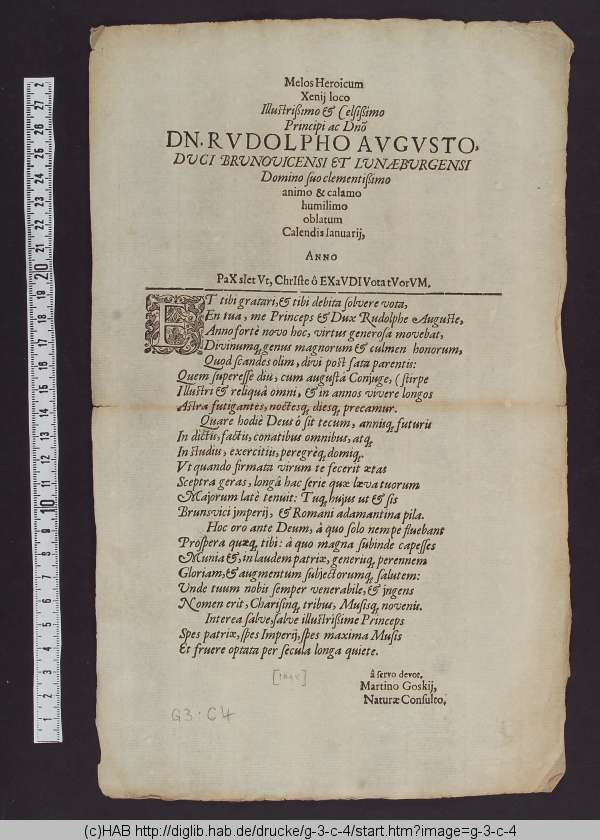 Melos Heroicum
Xenij loco
Illustrißimo & Celsißimo
Principi ac Dnõ
DN. RVDOLPHO AVGVSTO,
DUCI BRUNOVICENSI ET LUNÆBURGENSI
Domino suo clementißimo
animo & calamo
humilimo
oblatum
Calendis Ianuarij,
ANNO
PaX sIet Vt, ChrIste ô EXaVDI Vota tVorVM.
ET tibi gratari, & tibi debita solvere vota,
En tua, me Princeps & Dux Rudolphe Auguste,
Anno fortè novo hoc, virtus generosa movebat,
Divinumq; genus magnorum & culmen honorum,
Quod scandes olim, divi post fata parentis:
Quem superesse diu, cum augustâ Conjuge, (stirpe
Illustri & reliquâ omni, & in annos vivere longos
Astra fatigantes, noctesq; diesq; precamur.
Quare hodiè Deus ô sit tecum, annisq; futuris
In dictis, factis, conatibus omnibus, atq;
In studiis, exercitiis, peregrèq; domiq;.
Vt quando firmata virum te fecerit ætas
Sceptra geras, longâ hac serie quæ læva tuorum
Majorum latè tenuit: Tuq; hujus ut & sis
Brunsvici jmperij, & Romani adamantina pila.
Hoc oro ante Deum, à quo solo nempe fluebant
Prospera quæq; tibi: à quo magna subinde capesses
Munia &, in laudem patriæ, generisq; perennem
Gloriam, & augmentum subjectorumq; salutem:
Unde tuum nobis semper venerabile, & jngens
Nomen erit, Charisinq; tribus, Musisq; novenis.
Interea salve, salve illustrißime Princeps
Spes patriæ, spes Imperij, spes maxima Musis
Et fruere optata per secula longa quiete.
â servo devot.
Martino Goskij,
Naturæ Consulto.
G3 · C4
1 2 3 4 5 6 7 8 9 10 11 12 13 14 15 16 17 18 19 20 21 22 23 24 25 26 27 2
(c)HAB http://diglib.hab.de/drucke/g-3-c-4/start.htm?image=g-3-c-4